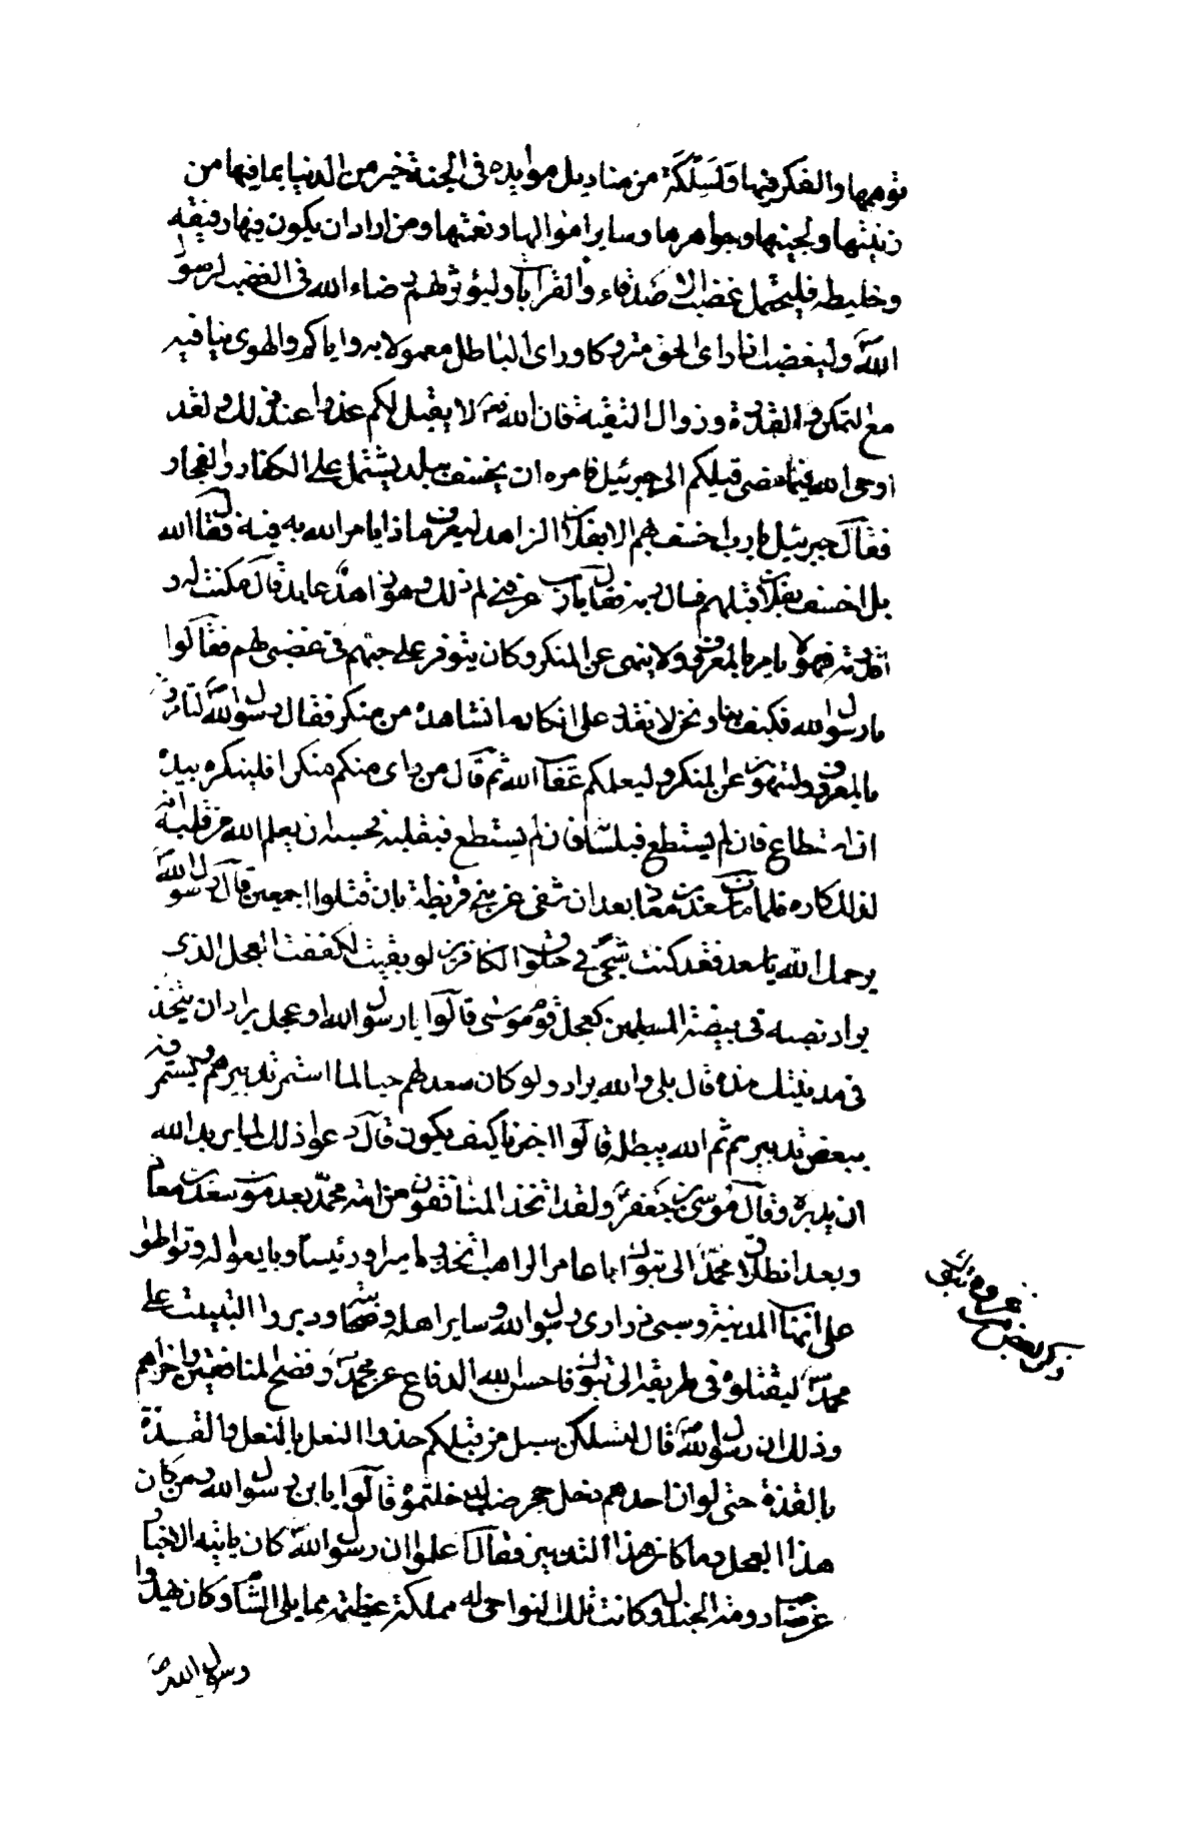 توهمها والفكر فيها ولسلكة من مناديل موايده فى الجنة خير من الدنيا بما فيها من
زينتها ولجينها وجواهرها وساير اموالها ونعمتها ومن اراد ان يكون فيها رفيقه
وخليطه فليحتمل غضب الاصدقاء والقرابات وليؤثر لهم رضاء الله فى الغضب لرسول
الله وليغضب اذا راى الحق متروكا وراى الباطل معمولا به واياكم والهوى نيا فيه
مع التمكن والقدرة وزوال التقية فان الله لا يقبل لكم عذرا عند ذلك ولقد
اوحى الله فيما مضى قبلكم الى جبرئيل فامره ان يخسف ببلد يشتمل على الكفار والفجار
فقال جبرئيل يا رب اخسف بهم الا بفلان الزاهد ليعرف ماذا يامر الله به فيه فقال الله
بل اخسف بفلان قبلهم فسال ربه فقال يا رب عرفنى لم ذلك وهو زاهد عابد قال مكنت له و
اقدرته فهو لا يامر بالمعروف ولا ينهى عن المنكر وكان يتوفر على حبهم فى غضبى لهم فقالوا
يا رسول الله فكيف بنا ونحن لا نقدر على انكار ما نشاهده من منكر فقال رسول الله لتامرن
بالمعروف ولتنهون عن المنكر او ليعمنكم عقاب الله ثم قال من راى منكم منكرا فلينكره بيده
ان استطاع فان لم يستطع فبلسانه فان لم يستطع فبقلبه فحسبه ان يعلم الله من قلبه انه
لذلك كاره فلما مات سعد بن معاذ بعد ان شفى من بنى قريظة بان قتلوا اجمعين قال رسول الله
يرحمك الله يا سعد فقد كنت شجى فى حلوق الكافرين لو بقيت لكففت العجل الذى
يراد نصبه فى بيضة المسلمين كعجل قوم موسى قالوا يا رسول الله او عجل يراد ان يتخذ
فى مدينتك هذه قال بلى والله يراد ولو كان سعد لهم حيا لما استمر تدبيرهم ويستمرون
ببعض تدبيرهم ثم الله يبطله قالوا اخبرنا كيف يكون قال دعوا ذلك لما يريد الله
ان يدبره وقال موسى بن جعفر ولقد اتخذ المنافقون من امة محمد بعد موت سعد بن معاذ
وبعد انطلاق محمد الى تبوك ابا عامر الراهب اتخذوه اميرا ورئيسا وبايعوا له وتواطؤا
على انهاب المدينة وسبى ذرارى رسول الله وساير اهله وصحابته ودبروا التبييت على
محمد ليقتلوه فى طريقه الى تبوك فاحسن الله الدفاع عن محمد وفضح المنافقين واخزاهم
وذلك ان رسول الله قال لتسلكن سبل من قبلكم حذوا النعل بالنعل والقذة
بالقذة حتى لو ان احدهم دخل جحر ضب لدخلتموه قالوا يا بن رسول الله ومن كان
هذا العجل وما كان هذا التدبير فقال اعلموا ان رسول الله كان ياتيه الاخبار
عن صاحب دومة الجندل وكانت تلك النواحى له مملكة عظيمة مما يلى الشام وكان يهدد
رسول الله
ذكر بعض من غزوة تبوك